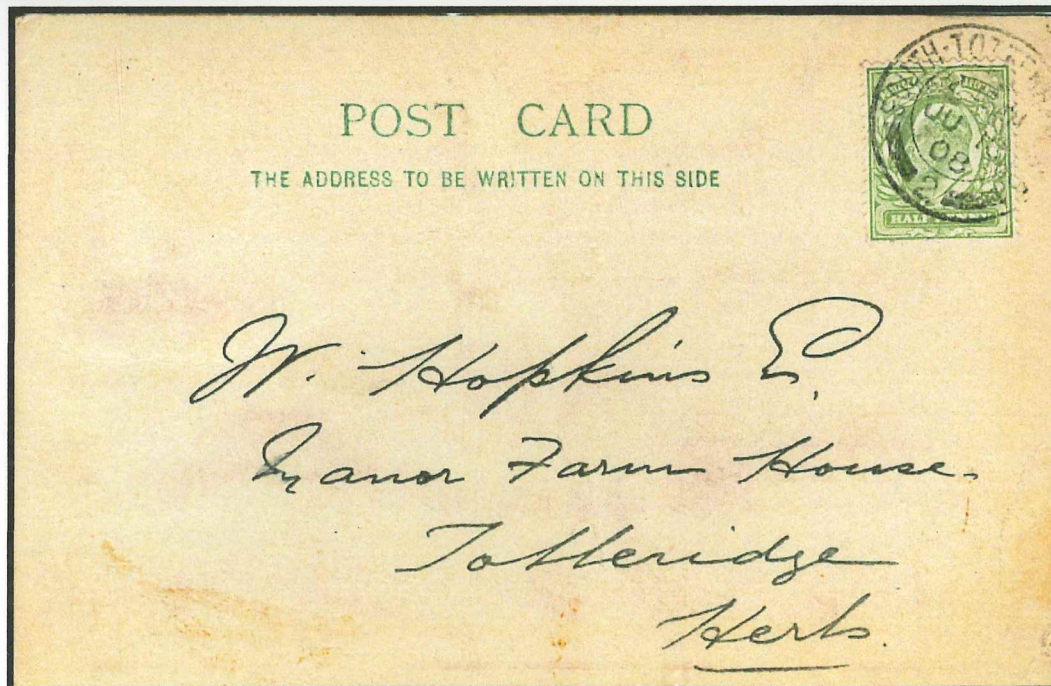 POST CARD
THE ADDRESS TO BE WRITTEN ON THIS SIDE
SOUTH-TOTTENHAM
JU
08
HALFPENNY
W. Hopkins E.
Manor Farm House.
Totteridge
Herts.